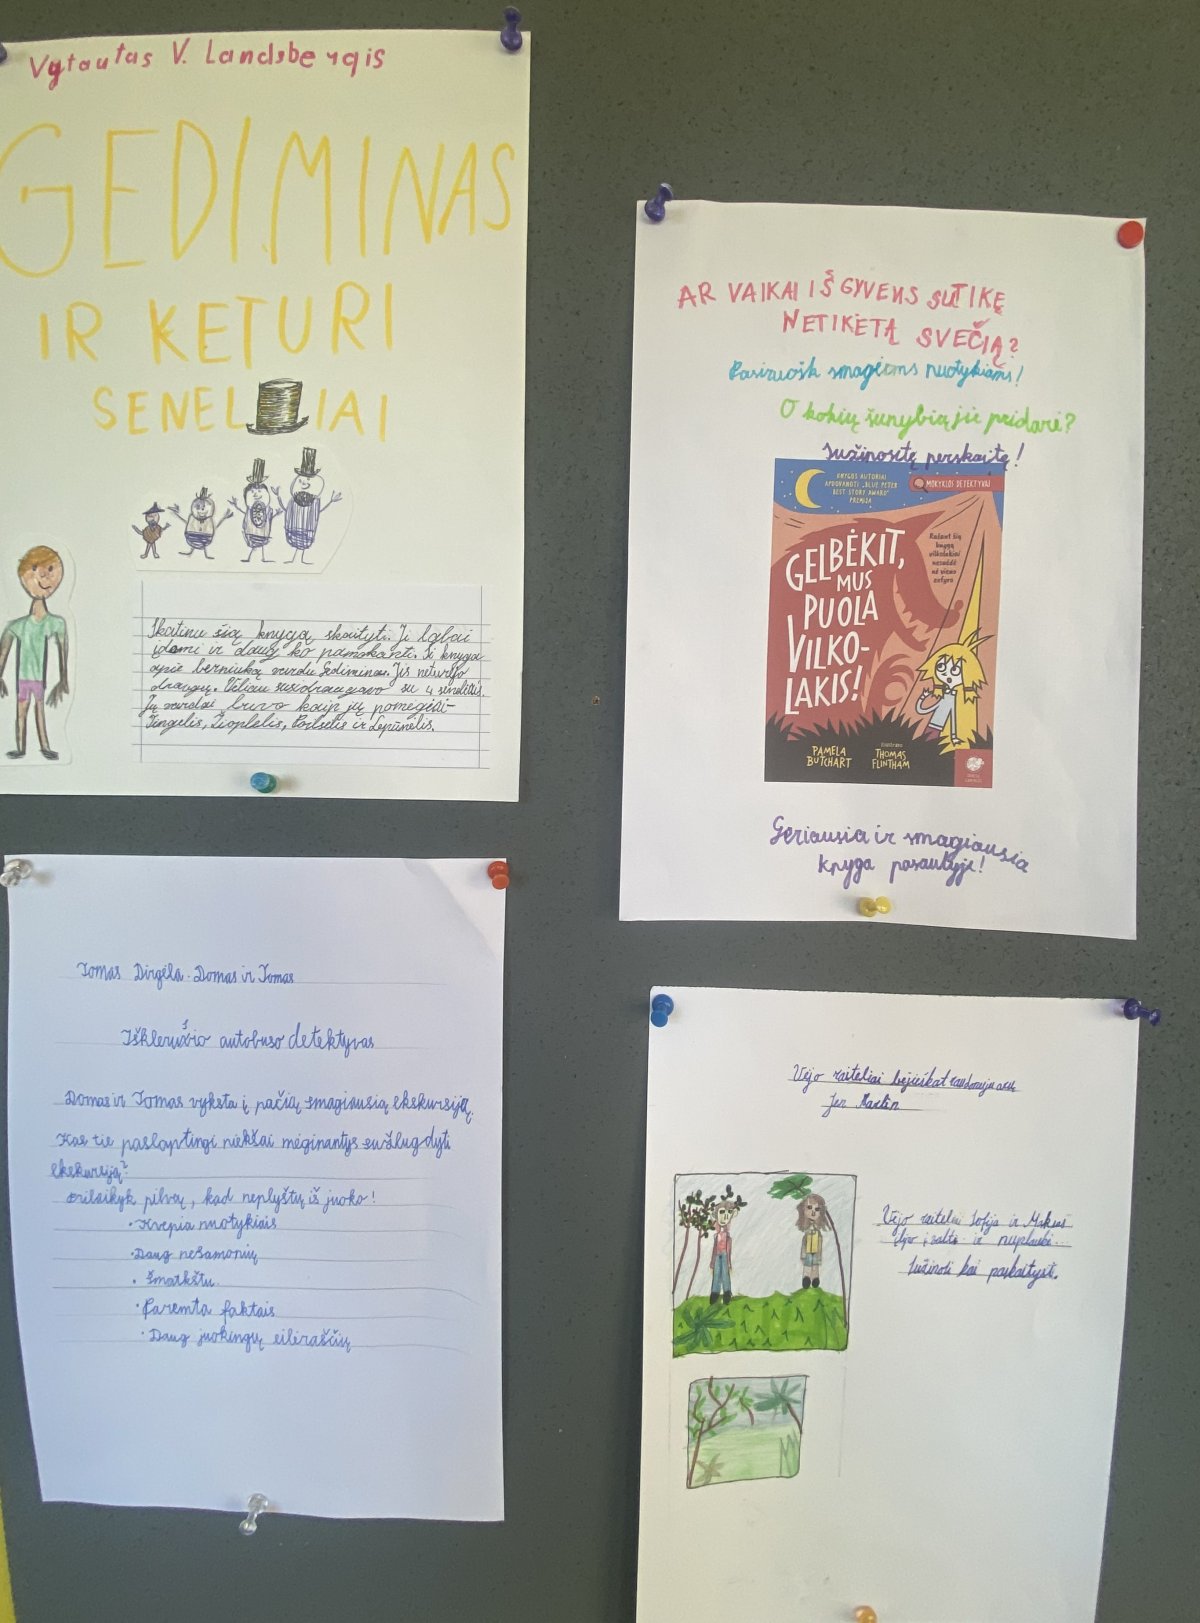 Vytautas V. Landsbergis
GEDIMINAS
IR KETURI
SENELIAI
Skatinu šią knygą skaityti. Ji labai
įdomi ir daug ko pamokanti. Ji knyga
apie berniuką vardu Gediminas. Jis neturėjo
draugų. Vėliau susidraugavo su 4 seneliais.
Jų vardai buvo kaip jų pomėgiai-
Tingelis, Žioplelis, Lepūnėlis.
AR VAIKAI IŠGYVENS SUTIKĘ
NETIKĖTĄ SVEČIĄ?
Pasiruošk smagiems nuotykiams!
O kokių šunybių jie pridarė?
Sužinosite perskaitę!
KNYGOS AUTORIAI
APDOVANOTI „BLUE PETER
BEST STORY AWARD“
PREMIJA
MOKYKLOS DETEKTYVAI
GELBĖKIT,
MUS
PUOLA
VILKO-
LAKIS!
Rašant šią
knygą
vilkolakiai
nesuėdė
nė vieno
PAMELA
BUTCHART
Iliustravo
THOMAS
FLINTHAM
Geriausia ir smagiausia
knyga pasaulyje!
Tomas Dirgėla. Domas ir Tomas
Iškleručio autobuso detektyvas
Domas ir Tomas vyksta į pačią smagiausią ekskursiją.
Kas tie paslaptingi niekšai mėginantys sužlugdyti
ekskursiją?
Prilaikyk pilvą, kad neplyštų iš juoko!
• Kvepia nuotykiais
• Daug nesąmonių
• Šmaikštu
• Paremta faktais
• Daug juokingų eilėraščių
Vėjo raiteliai beieškat
Jen Martin
Vėjo raiteliai Sofija ir Maksas
ir nuplaukė...
Sužinosi kai paskaitysi.